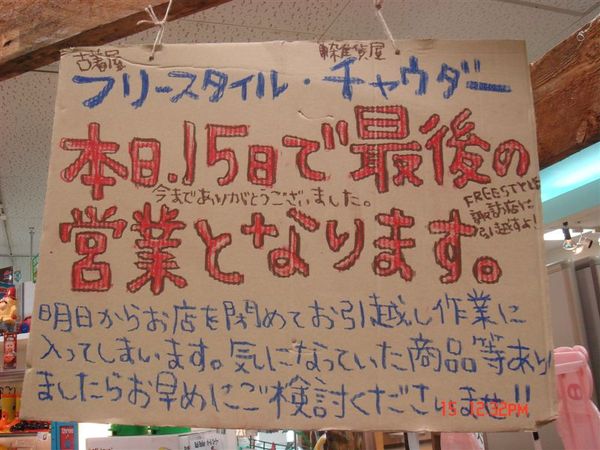 古着屋 雑貨屋
フリースタイル・チャウダー
本日、15日で最後の
今までありがとうございました。
営業となります。
FREESTYLEは
諏訪店に
引越すよ!
明日からお店を閉めてお引越し作業に
入ってしまいます。気になっていた商品等あり
ましたらお早めにご検討くださいませ!!
15 12:32PM